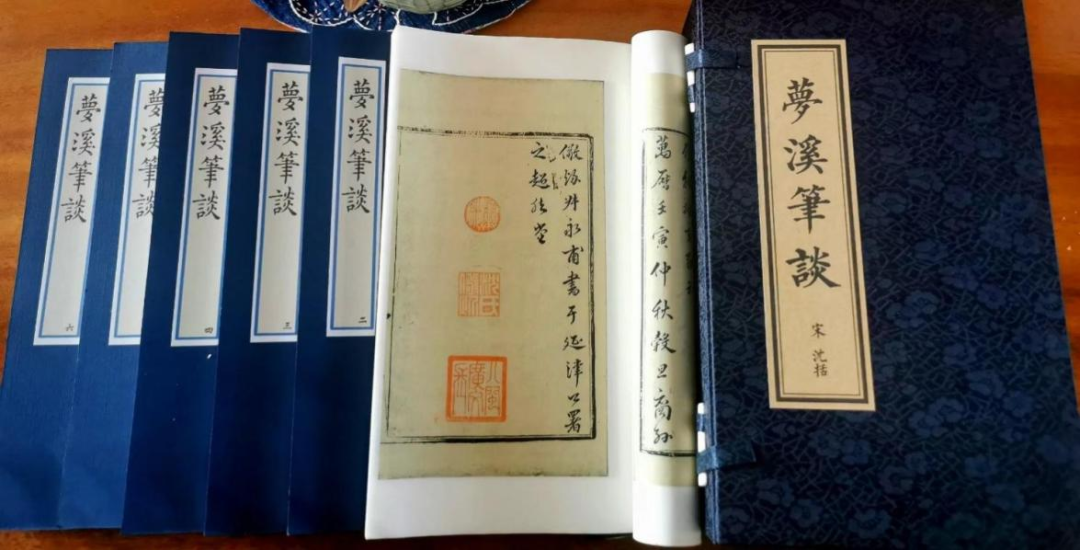 夢溪筆談
六
夢溪筆談
夢溪筆談
四
夢溪筆談
三
夢溪筆談
二
萬曆壬寅仲秋穀旦裔孫
儆永甫書于延津公署
之超然堂
夢溪筆談
宋 沈括